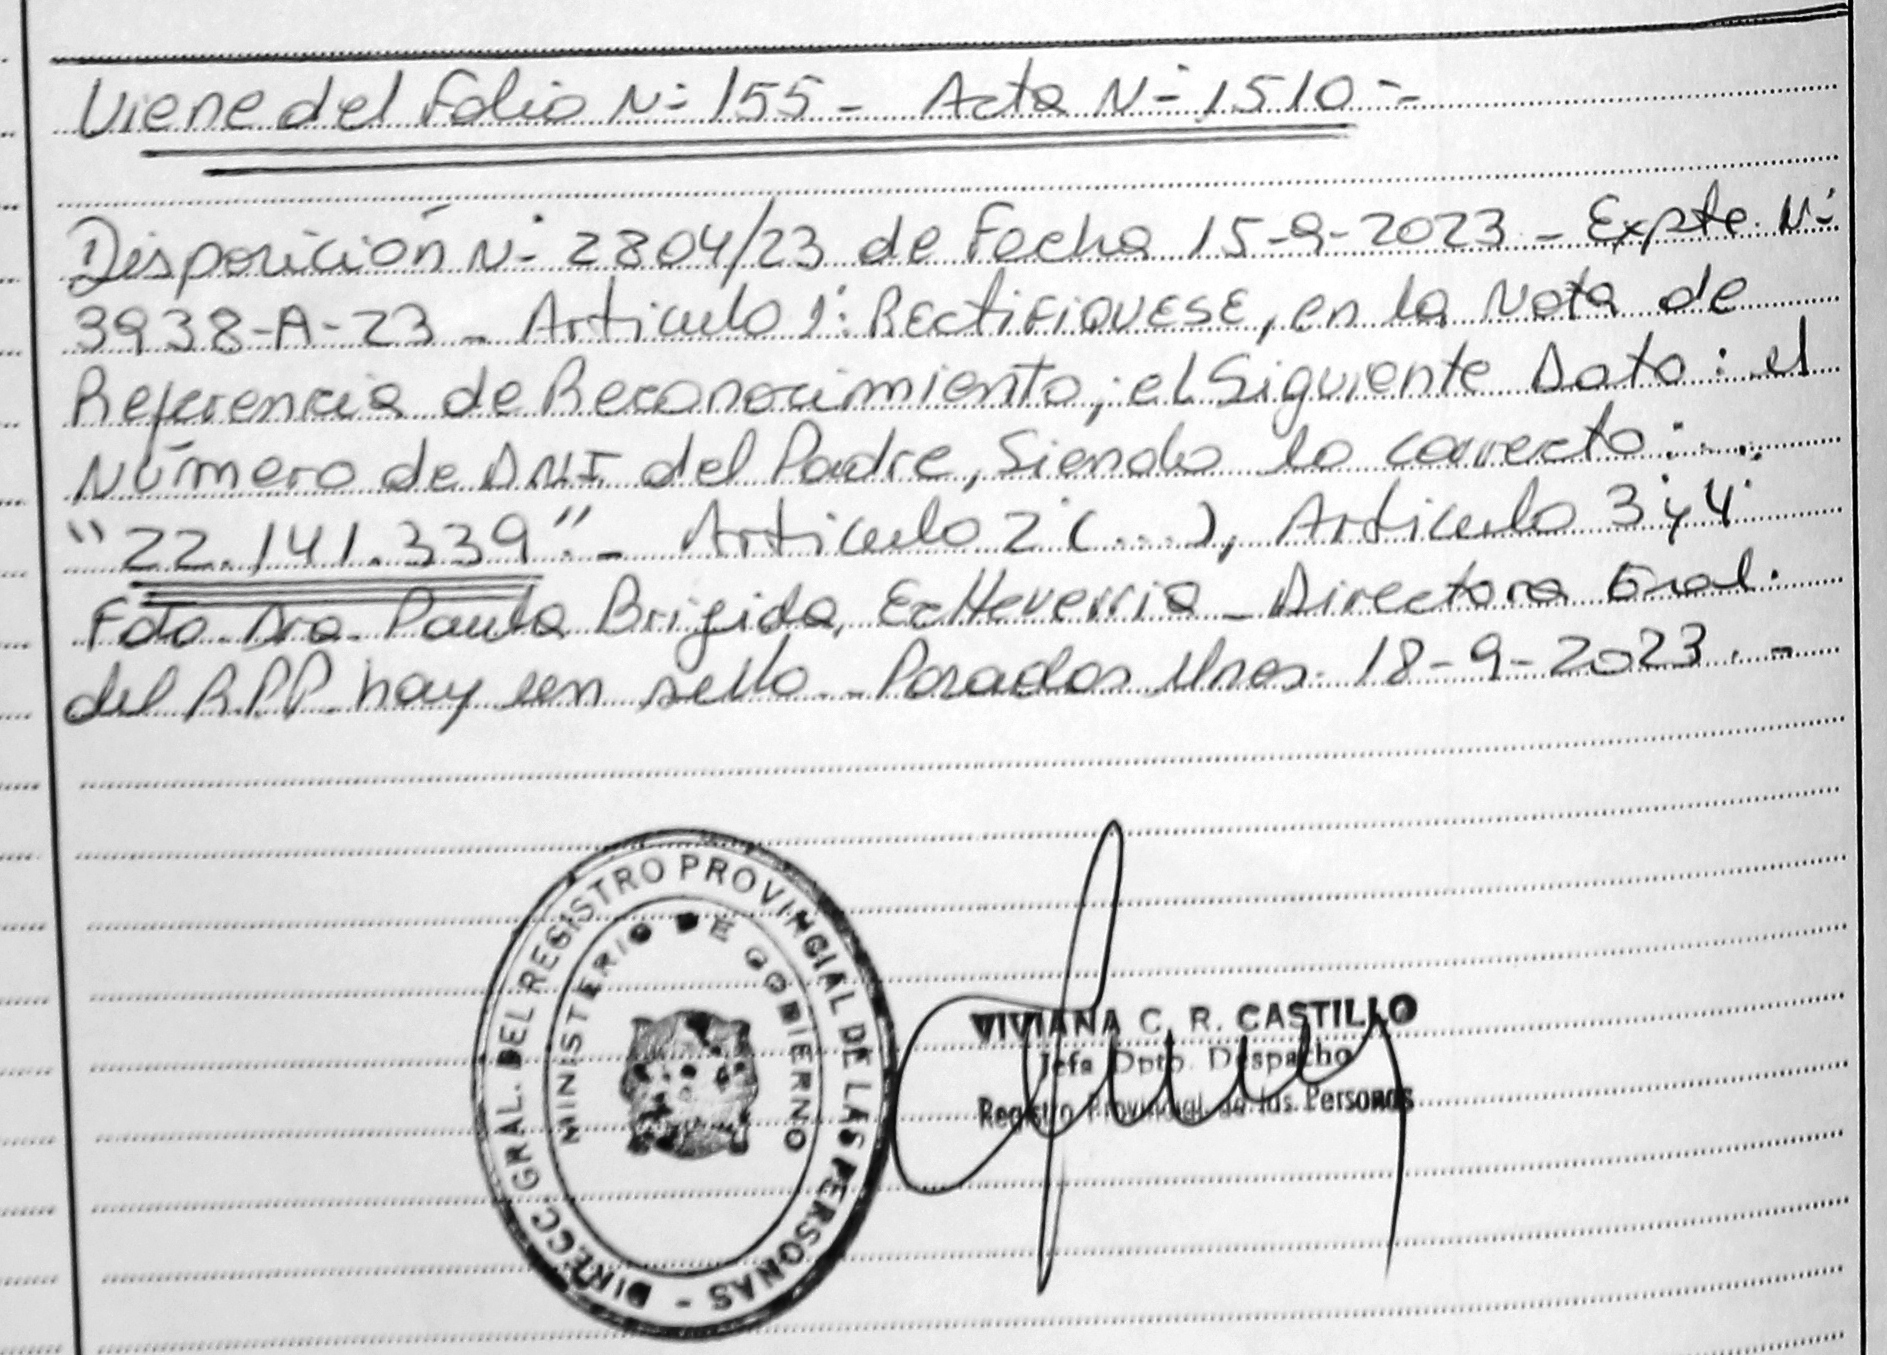 Viene del Folio N° 155 - Acta N° 1510 -
Disposición N° 2804/23 de Fecha 15-9-2023 - Expte. N°
3938-A-23 - Articulo 1°: RECTIFIQUESE, en la Nota de
Referencia de Reconocimiento, el Siguiente Dato: el
Número de DNI del Padre, Siendo lo correcto:
"22.141.339" - Articulo 2° (...), Articulo 3° y 4°
Fdo. Dra. Paula Brigida, Echeverria - Directora Gral.
del R.P.P. hay un sello - Posadas Mnes. 18-9-2023. -
DIRECC. GRAL. DEL REGISTRO PROVINCIAL DE LAS PERSONAS -
MINISTERIO DE GOBIERNO
VIVIANA C. R. CASTILLO
Jefa Dpto. Despacho
Registro Provincial de las Personas